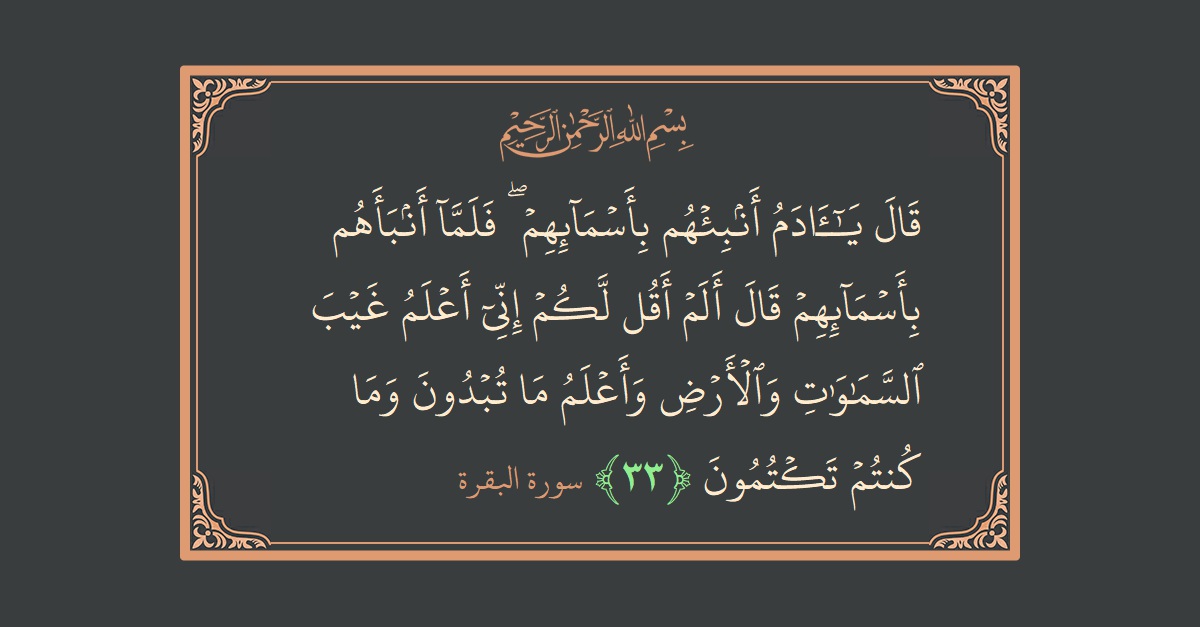 بِسْمِ ٱللَّهِ ٱلرَّحْمَٰنِ ٱلرَّحِيمِ
قَالَ يَـٰٓـَٔادَمُ أَنۢبِئْهُم بِأَسْمَآئِهِمْ ۖ فَلَمَّآ أَنۢبَأَهُم
بِأَسْمَآئِهِمْ قَالَ أَلَمْ أَقُل لَّكُمْ إِنِّىٓ أَعْلَمُ غَيْبَ
ٱلسَّمَـٰوَٰتِ وَٱلْأَرْضِ وَأَعْلَمُ مَا تُبْدُونَ وَمَا
كُنتُمْ تَكْتُمُونَ ﴿٣٣﴾ سورة البقرة